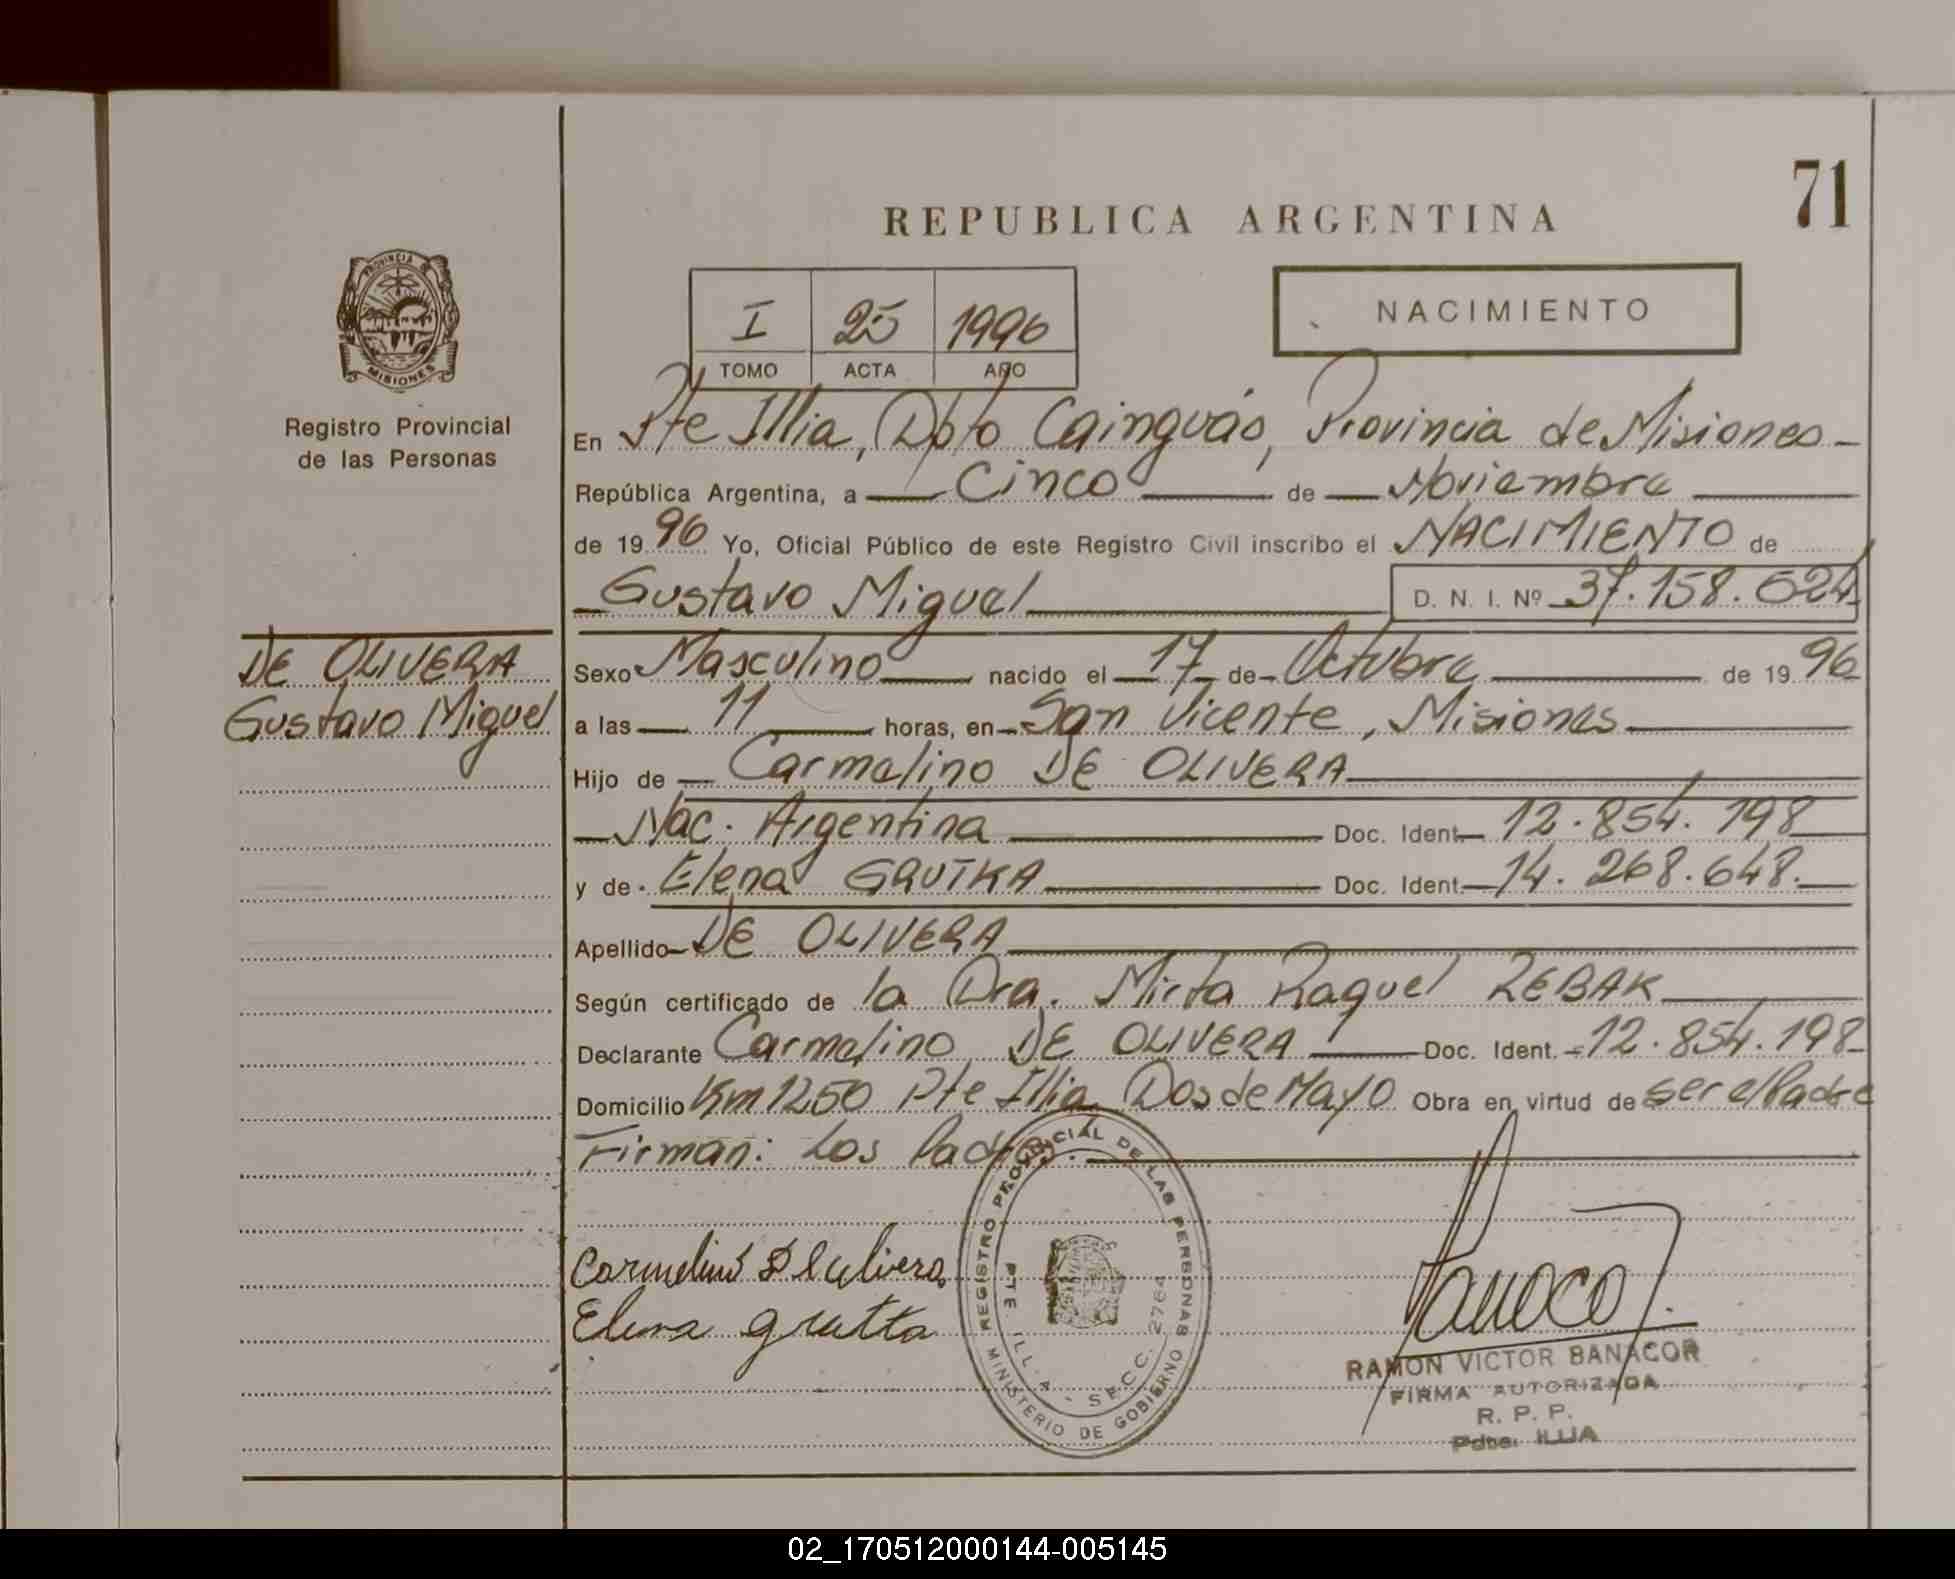 71
REPUBLICA ARGENTINA
PROVINCIA DE
MISIONES
Registro Provincial
de las Personas
I 25 1996
TOMO ACTA AÑO
NACIMIENTO
En Pte Illia, Dpto Cainguás, Provincia de Misiones
República Argentina, a Cinco de Noviembre
de 1996 Yo, Oficial Público de este Registro Civil inscribo el NACIMIENTO de
Gustavo Miguel D. N. I. Nº 37.158.624
DE OLIVERA
Gustavo Miguel
Sexo Masculino nacido el 17 de Octubre de 1996
a las 11 horas, en San Vicente, Misiones
Hijo de Carmelino DE OLIVERA
Nac. Argentina Doc. Ident. 12.854.198
y de Elena GRUTKA Doc. Ident. 14.268.648.
Apellido DE OLIVERA
Según certificado de la Dra. Mirta Raquel REBAK
Declarante Carmelino DE OLIVERA Doc. Ident. 12.854.198
Domicilio Km 1250 Pte Illia Dos de Mayo Obra en virtud de ser el Padre
Firman: Los Padres.
Elena grutka
REGISTRO PROVINCIAL DE LAS PERSONAS
MINISTERIO DE GOBIERNO
PTE. ILLIA - SECC. 2764
RAMON VICTOR BANACOR
FIRMA AUTORIZADA
R. P. P.
Pdte. ILLIA
02_170512000144-005145